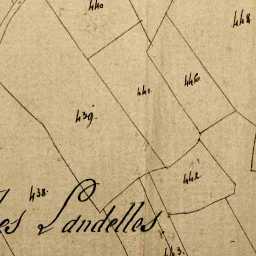 440
448
446
441
439
442
438
es Landelles
443.